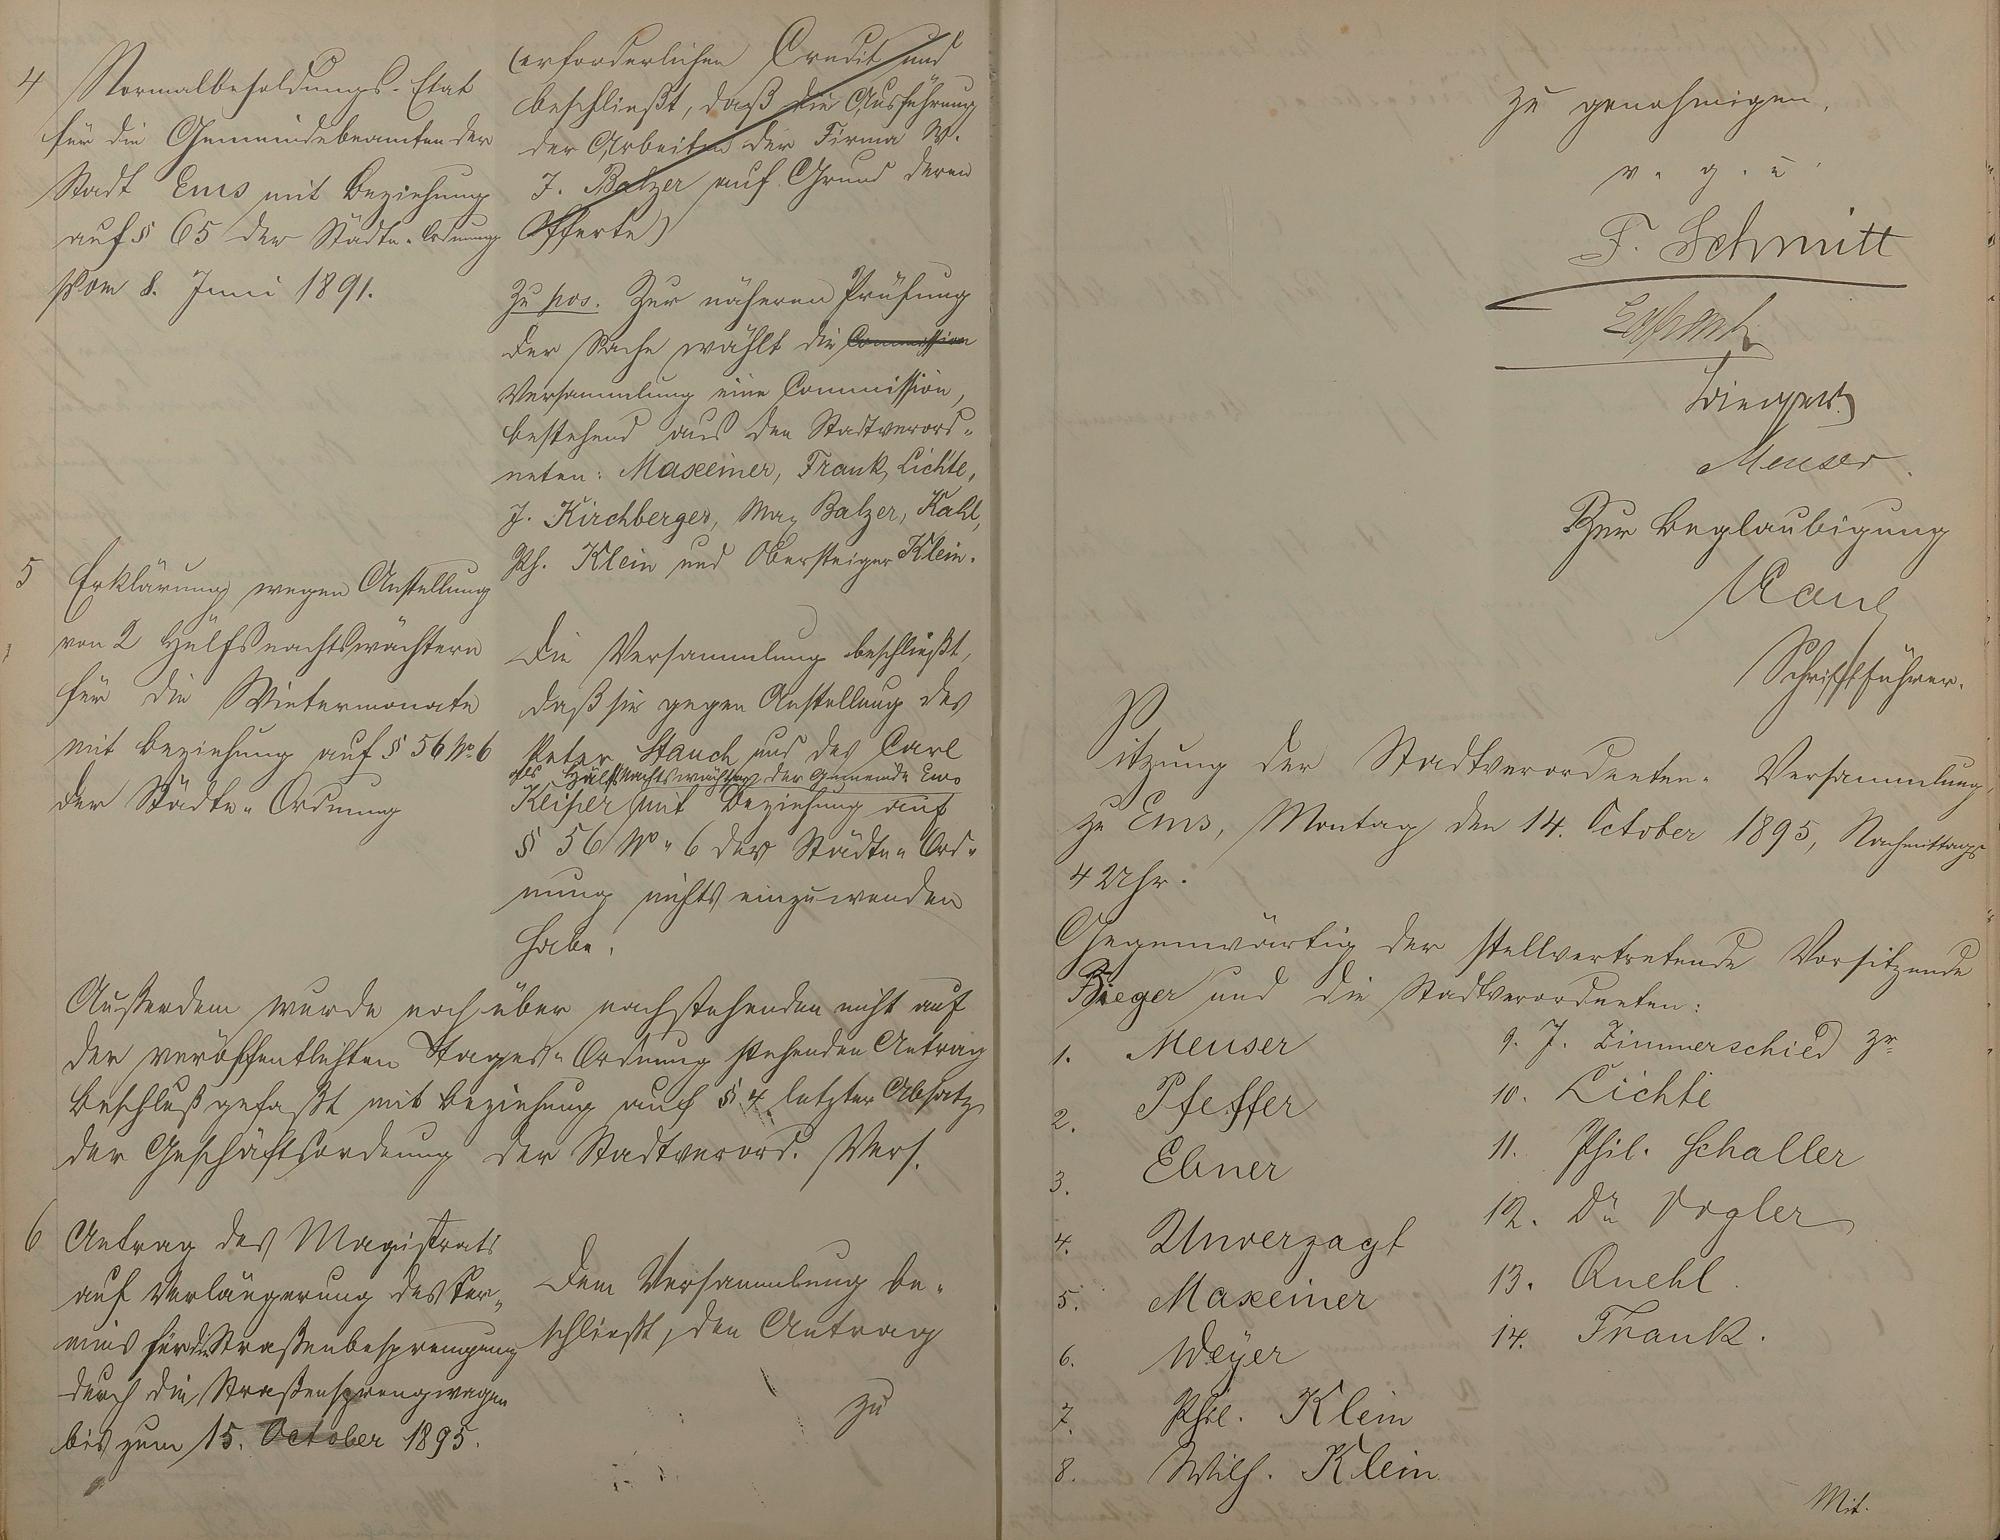 4 Normalbesoldungs-Etat
für die Gemeindebeamten der
Stadt Ems mit Beziehung
auf § 65 der Städte-Ordnung
vom 8. Juni 1891.
(erforderlichen Credit und
beschließt, daß die Ausführung
der Arbeiten der Firma W.
J. Balzer auf Grund deren
Offerte)
Zu pos. Zur näheren Prüfung
der Sache wählt die Commission
Versammlung eine Commission,
bestehend aus den Stadtverord-
neten: Maxeiner, Frank, Lichte,
J. Kirchberger, Max Balzer, Kahl,
Ph. Klein und Obersteiger Klein.
5 Erklärung wegen Anstellung
von 2 Hülfsnachtswächtern
für die Wintermonate
mit Beziehung auf § 56 No 6
der Städte-Ordnung
Die Versammlung beschließt,
daß sie gegen Anstellung des
Peter Stauch und des Carl
als Hülfsnachtswächter der Gemeinde Ems
Keiper mit Beziehung auf
§ 56 No 6 der Städte-Ord-
nung nichts einzuwenden
habe.
Außerdem wurde noch über nachstehenden nicht auf
der veröffentlichten Tages-Ordnung stehenden Antrag
Beschluß gefaßt mit Beziehung auf § 4 letzter Absatz
der Geschäftsordnung der Stadtverord. Vers.
6 Antrag des Magistrats
auf Verlängerung des Ter-
mins für die Straßenbesprengung
durch die Straßensprengwagen
bis zum 15. October 1895.
Dem Versammlung be-
schließt, den Antrag
zu
zu genehmigen.
v. g. u.
F. Schmitt
Meuser
Zur Beglaubigung
Kaul
Schriftführer.
Sitzung der Stadtverordneten-Versammlung
zu Ems, Montag den 14. October 1895, Nachmittags
4 Uhr.
Gegenwärtig der stellvertretende Vorsitzende
Bieger und die Stadtverordneten:
1. Meuser
2. Pfeffer
3. Ebner
4. Unverzagt
5. Maxeiner
6. Weyer
7. Phil. Klein
8. Wilh. Klein
9. J. Zimmerschied 2r
10. Lichte
11. Phil. Schaller
12. Dr. Vogler
13. Quehl
14. Frank.
Mit.